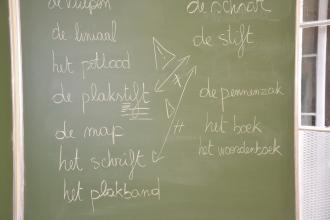 de vulpen
de liniaal
het potlood
de plakstift
de map
het schrijft
het plakband
de schaar
de stift
de pennenzak
het boek
het woordenboek